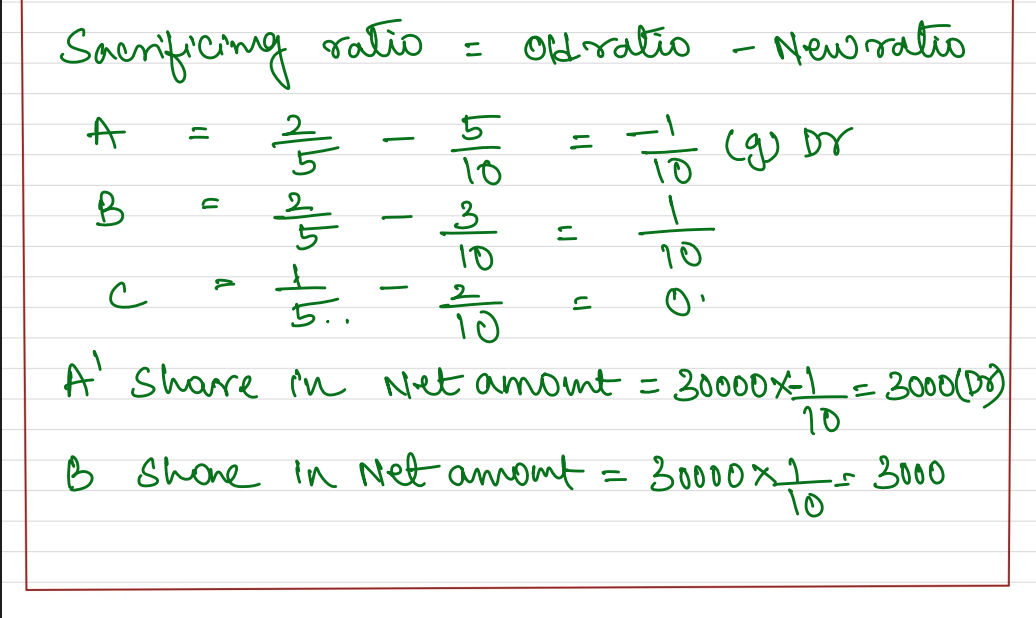 Sacrificing ratio = Old ratio - New ratio
A = 2/5 - 5/10 = -1/10 (g) Dr
B = 2/5 - 3/10 = 1/10
C = 1/5.. - 2/10 = 0.
A' Share in Net amount = 30000x-1/10 = 3000(Dr)
B Share in Net amount = 30000x1/10 = 3000